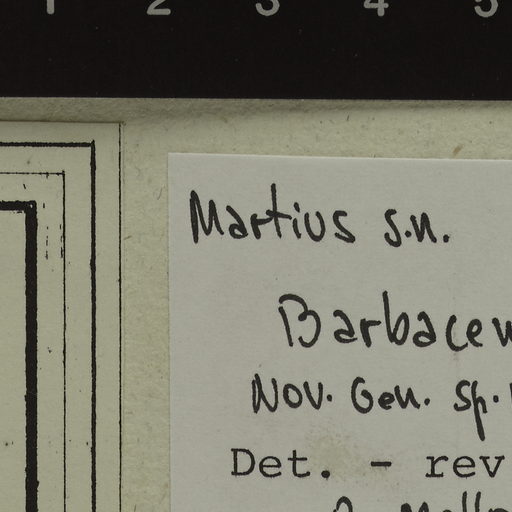 1 2 3 4 5
Martius s.n.
Barbacen
Nov. Gen. Sp.
Det. - rev